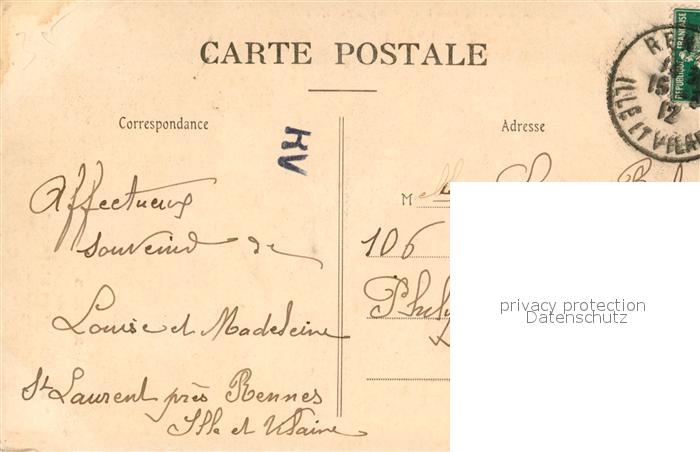 CARTE POSTALE
Correspondance
Adresse
RE
15
12
ILLE ET VILAI
REPUBLIQUE FRANÇAISE
KV
Affectueux
souvenir de
Louise et Madeleine
St Laurent près Rennes
Ille et Vilaine
M elle
106
privacy protection
Datenschutz